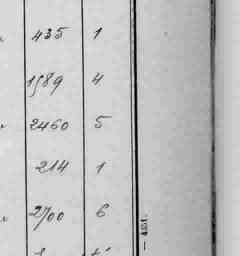 435 1
1989 4
2460 5
214 1
2700 6
— 4151.